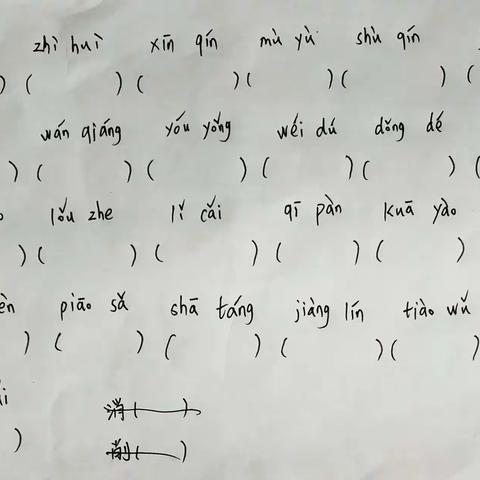 zhì huì xīn qín mù yù shù qín
) ( ) ( ) ( ) ( ) (
wán qiáng yóu yǒng wéi dú dǒng dé
) ( ) ( ) ( ) (
lǒu zhe lǐ cǎi qī pàn kuā yào
) ( ) ( ) ( ) ( )
èn piāo sǎ shā táng jiàng lín tiào wǔ
) ( ) ( ) ( ) ( )
消( )
)
削( )